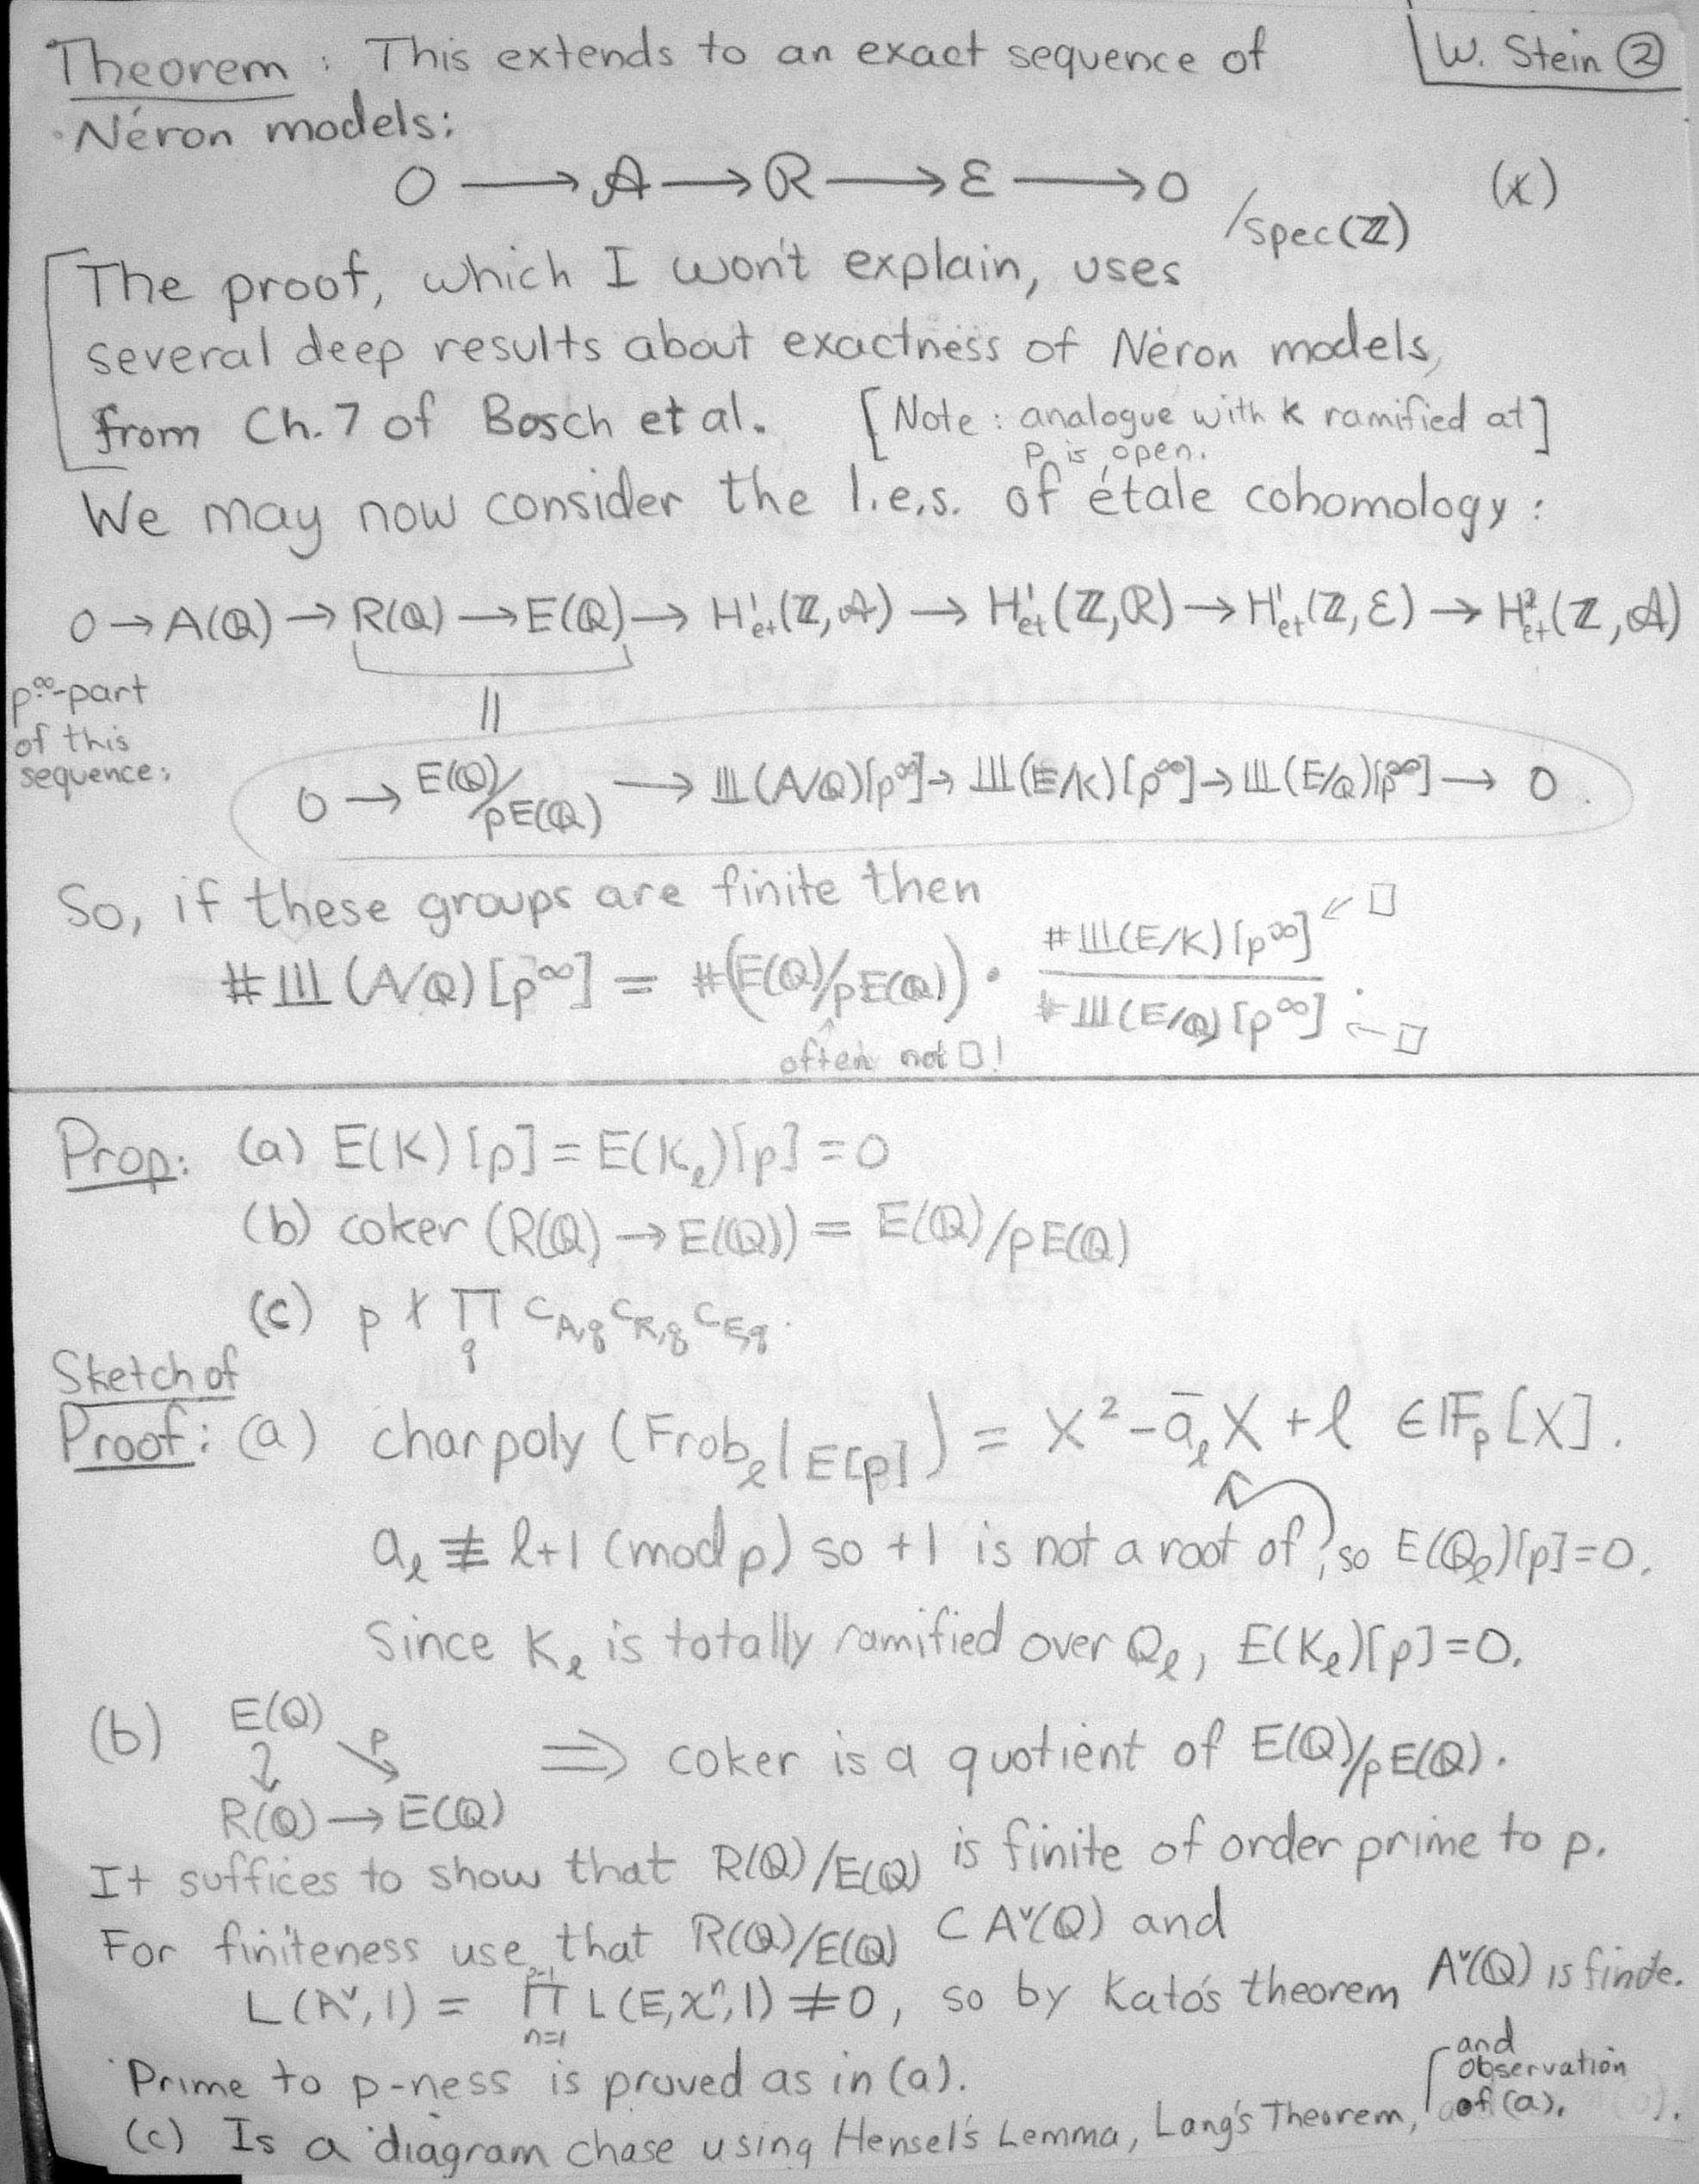 Theorem: This extends to an exact sequence of
W. Stein ②
Néron models:
0 → 𝒜 → ℛ → ℰ → 0 /spec(ℤ) (*)
[The proof, which I won't explain, uses
several deep results about exactness of Néron models,
from Ch. 7 of Bosch et al. [Note: analogue with K ramified at]
p is open.
We may now consider the l.e.s. of étale cohomology:
0 → A(ℚ) → R(ℚ) → E(ℚ) → H¹ₑₜ(ℤ, 𝒜) → H¹ₑₜ(ℤ, ℛ) → H¹ₑₜ(ℤ, ℰ) → H²ₑₜ(ℤ, 𝒜)
p^∞-part
of this
sequence:
||
0 → E(ℚ)/pE(ℚ) → Ш(A/ℚ)[p^∞] → Ш(E/K)[p^∞] → Ш(E/ℚ)[p^∞] → 0.
So, if these groups are finite then
#Ш(A/ℚ)[p^∞] = #(E(ℚ)/pE(ℚ)) · #Ш(E/K)[p^∞] ← □ / #Ш(E/ℚ)[p^∞] ← □ .
↑
often not □!
Prop: (a) E(K)[p] = E(K_ℓ)[p] = 0
(b) coker (R(ℚ) → E(ℚ)) = E(ℚ)/pE(ℚ)
(c) p ∤ ∏_q c_{A,q} c_{R,q} c_{E,q}.
Sketch of
Proof: (a) charpoly (Frob_ℓ | E[p]) = X² - ā_ℓ X + ℓ ∈ 𝔽_p[X].
a_ℓ ≢ ℓ+1 (mod p) so +1 is not a root of ↑, so E(ℚ_ℓ)[p]=0.
Since K_ℓ is totally ramified over ℚ_ℓ, E(K_ℓ)[p]=0.
(b) E(ℚ) ↘p
↓ ⟹ coker is a quotient of E(ℚ)/pE(ℚ).
R(ℚ) → E(ℚ)
It suffices to show that R(ℚ)/E(ℚ) is finite of order prime to p.
For finiteness use that R(ℚ)/E(ℚ) ⊂ A^∨(ℚ) and
L(A^∨,1) = ∏_{n=1}^{p-1} L(E,χⁿ,1) ≠ 0, so by Kato's theorem A^∨(ℚ) is finite.
Prime to p-ness is proved as in (a).
(c) Is a diagram chase using Hensel's Lemma, Lang's Theorem,
and
observation
of (a).